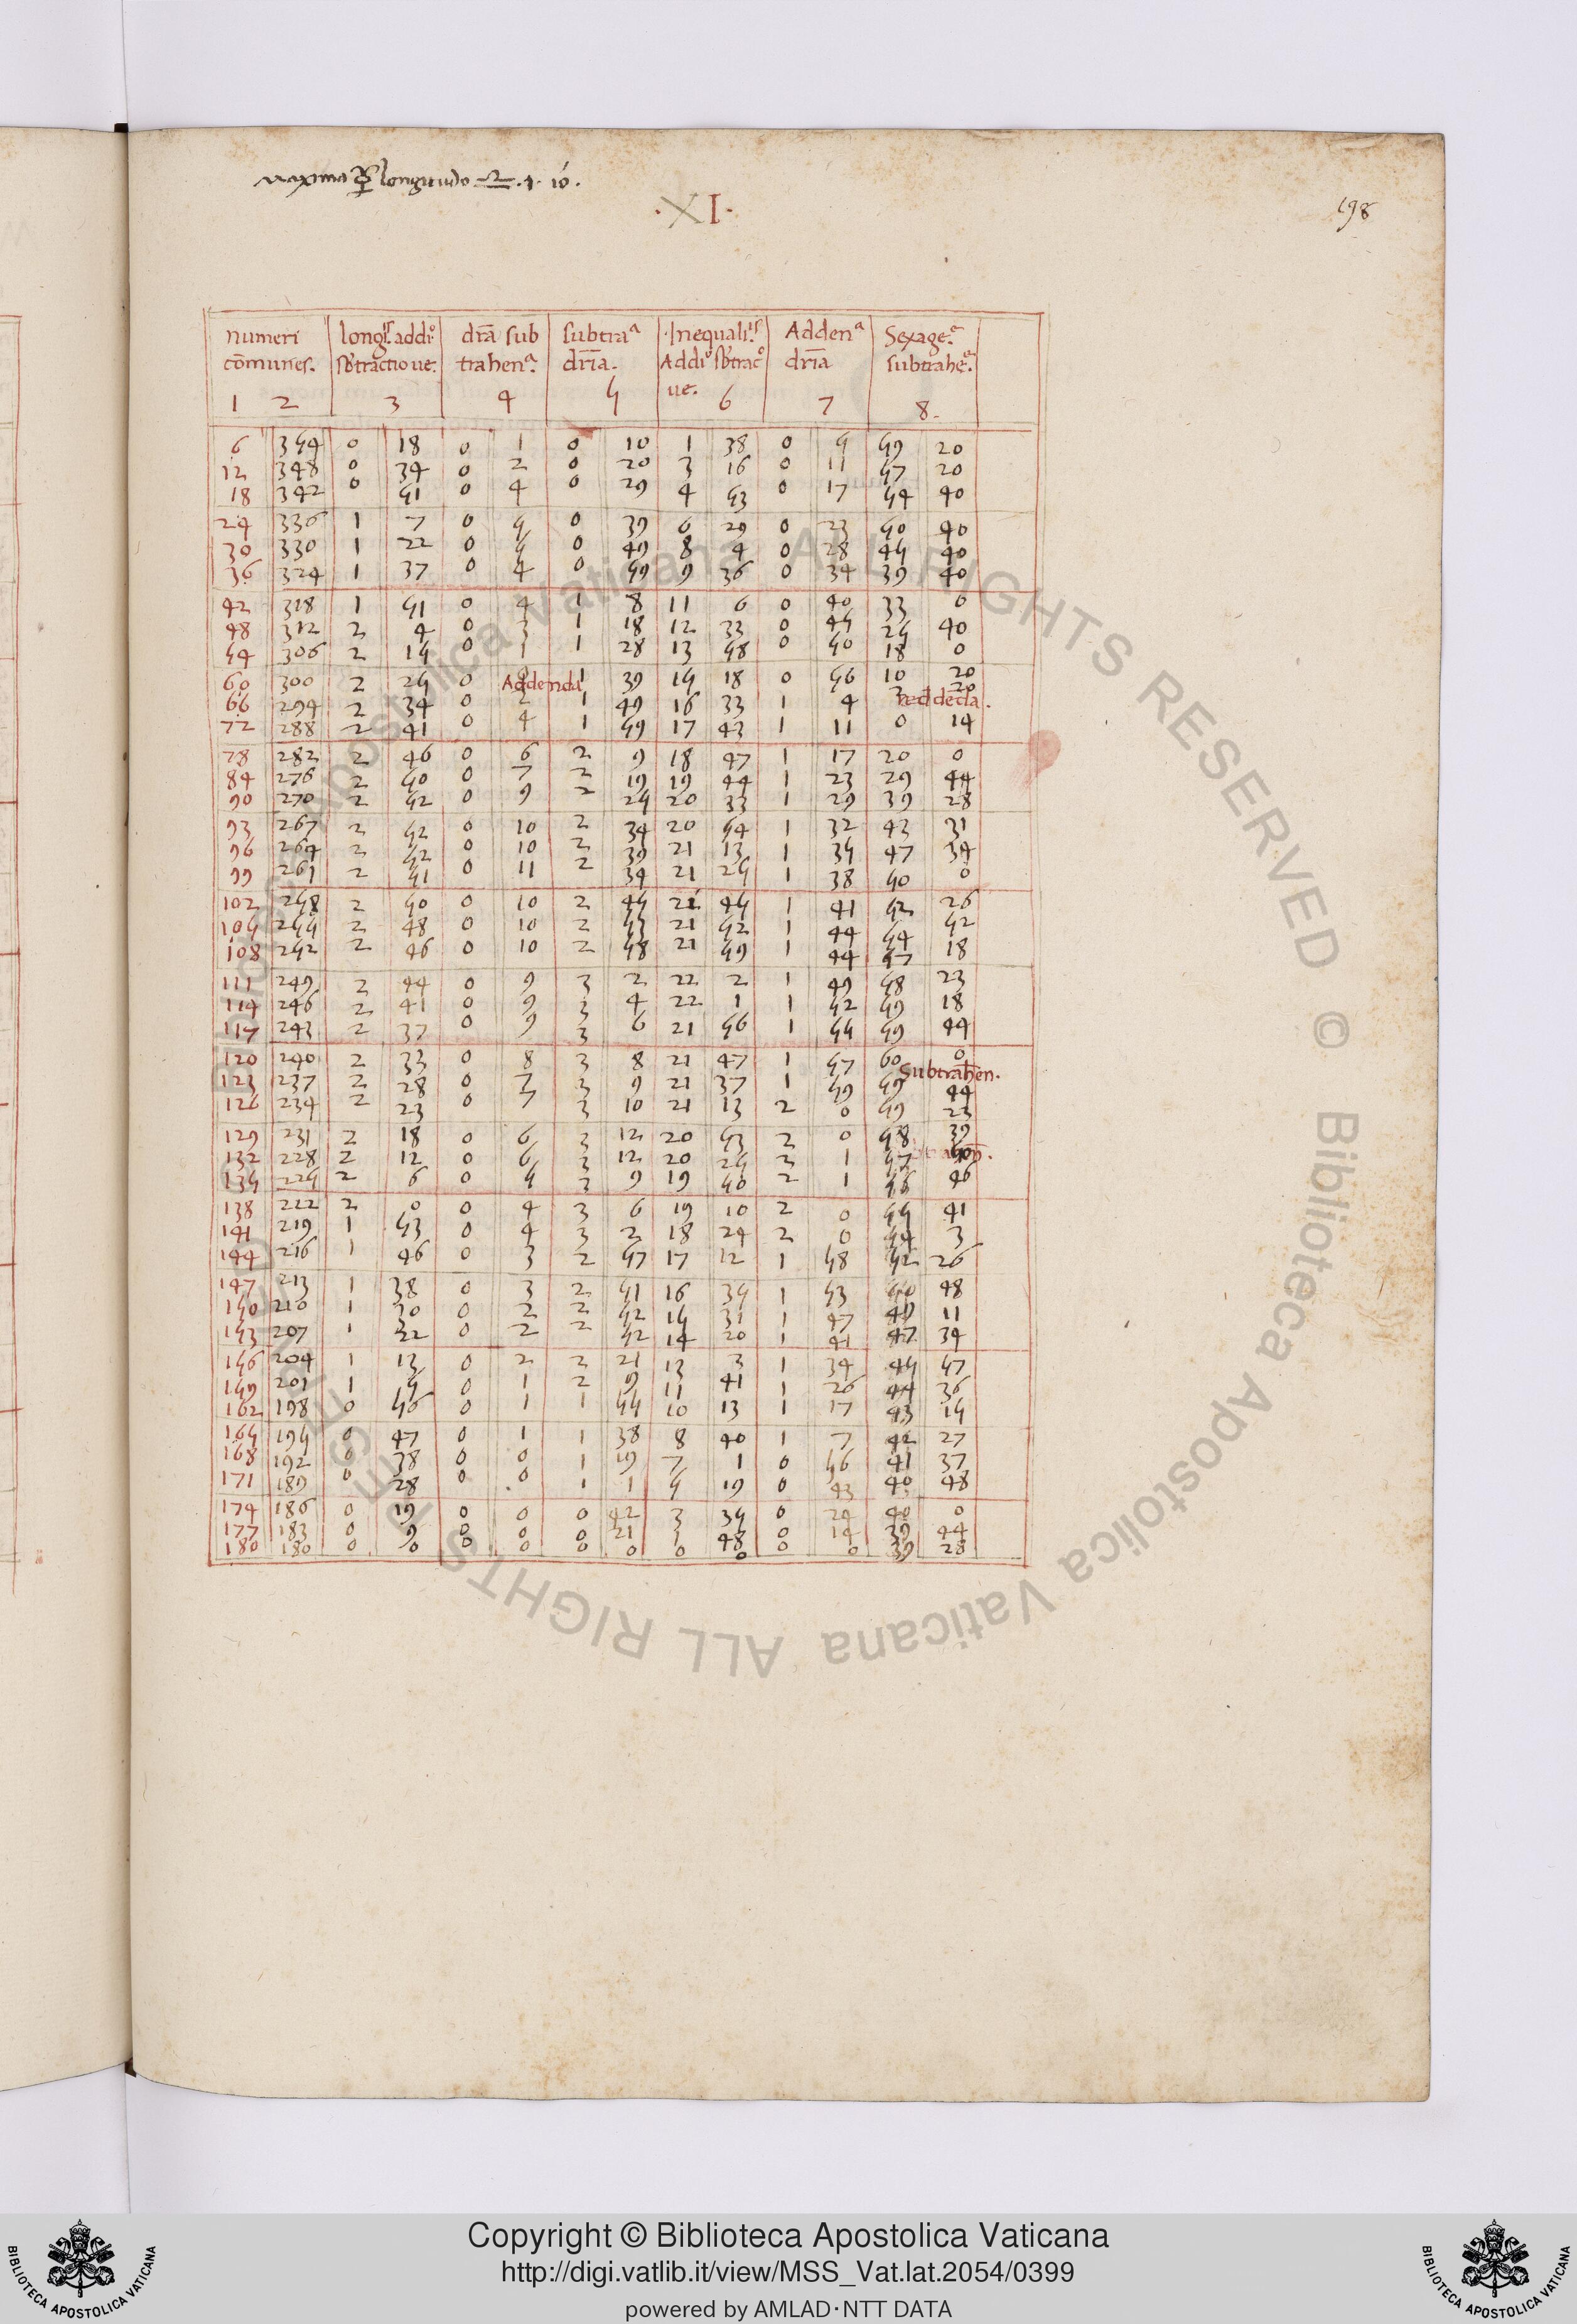 maxima longitudo 1. 10.
·XI·
198
numeri cōmunes. 1 2
longi. addi. sbtractio ue. 3
dr̄a sub trahenª. 4
subtraª dr̄ia. 5
Inequali. Addi° sbtrac° ue. 6
Addenª dr̄ia 7
Sexage. subtrahe. 8.
6 354 0 18 0 1 0 10 1 38 0 5 59 20
12 348 0 34 0 2 0 20 3 16 0 11 57 20
18 342 0 51 0 4 0 29 4 53 0 17 54 40
24 336 1 7 0 5 0 39 6 29 0 23 50 40
30 330 1 22 0 5 0 49 8 4 0 28 45 40
36 324 1 37 0 4 0 59 9 36 0 34 39 40
42 318 1 51 0 4 1 8 11 6 0 40 33 0
48 312 2 4 0 3 1 18 12 33 0 45 25 40
54 306 2 15 0 1 1 28 13 58 0 50 18 0
60 300 2 25 0 Addenda 1 39 15 18 0 56 10 20
66 294 2 34 0 2 1 49 16 33 1 4 2 20
Redde͞cta.
72 288 2 41 0 4 1 59 17 43 1 11 0 14
78 282 2 46 0 6 2 9 18 47 1 17 20 0
84 276 2 50 0 7 2 19 19 44 1 23 29 44
90 270 2 52 0 9 2 25 20 33 1 29 39 28
93 267 2 52 0 10 2 34 20 54 1 32 43 31
96 264 2 52 0 10 2 39 21 13 1 35 47 34
99 261 2 51 0 11 2 34 21 25 1 38 50 0
102 258 2 50 0 10 2 45 21 45 1 41 52 26
105 255 2 48 0 10 2 53 21 52 1 44 54 52
108 252 2 46 0 10 2 58 21 59 1 44 57 18
111 249 2 44 0 9 3 2 22 2 1 49 58 23
114 246 2 41 0 9 3 4 22 1 1 52 59 18
117 243 2 37 0 9 3 6 21 56 1 55 59 44
120 240 2 33 0 8 3 8 21 47 1 57 60 0
Subtrahen.
123 237 2 28 0 7 3 9 21 37 1 59 59 44
126 234 2 23 0 7 3 10 21 13 2 0 59 23
129 231 2 18 0 6 3 12 20 53 2 0 58 39
132 228 2 12 0 6 3 12 20 25 2 1 57
135 225 2 6 0 5 3 9 19 50 2 1 56 46
138 222 2 0 0 4 3 6 19 10 2 0 55 41
141 219 1 53 0 4 3 2 18 24 2 0 54 3
144 216 1 46 0 3 2 57 17 12 1 58 52 26
147 213 1 38 0 3 2 51 16 35 1 53 50 48
150 210 1 30 0 2 2 42 15 31 1 47 49 11
153 207 1 22 0 2 2 52 14 20 1 41 47 34
156 204 1 13 0 2 2 21 13 3 1 34 45 57
159 201 1 5 0 1 2 9 11 41 1 26 44 36
162 198 0 56 0 1 1 55 10 13 1 17 43 15
165 195 0 47 0 1 1 38 8 40 1 7 42 27
168 192 0 38 0 0 1 19 7 1 0 56 41 37
171 189 0 28 0 0 1 1 5 19 0 43 40 48
174 186 0 19 0 0 0 42 3 35 0 29 40 0
177 183 0 9 0 0 0 21 1 48 0 14 39 44
180 180 0 0 0 0 0 0 0 0 0 0 39 28
ALL RIGHTS RESERVED © Biblioteca Apostolica Vaticana
Copyright © Biblioteca Apostolica Vaticana
http://digi.vatlib.it/view/MSS_Vat.lat.2054/0399
powered by AMLAD·NTT DATA
BIBLIOTECA APOSTOLICA VATICANA
BIBLIOTECA APOSTOLICA VATICANA